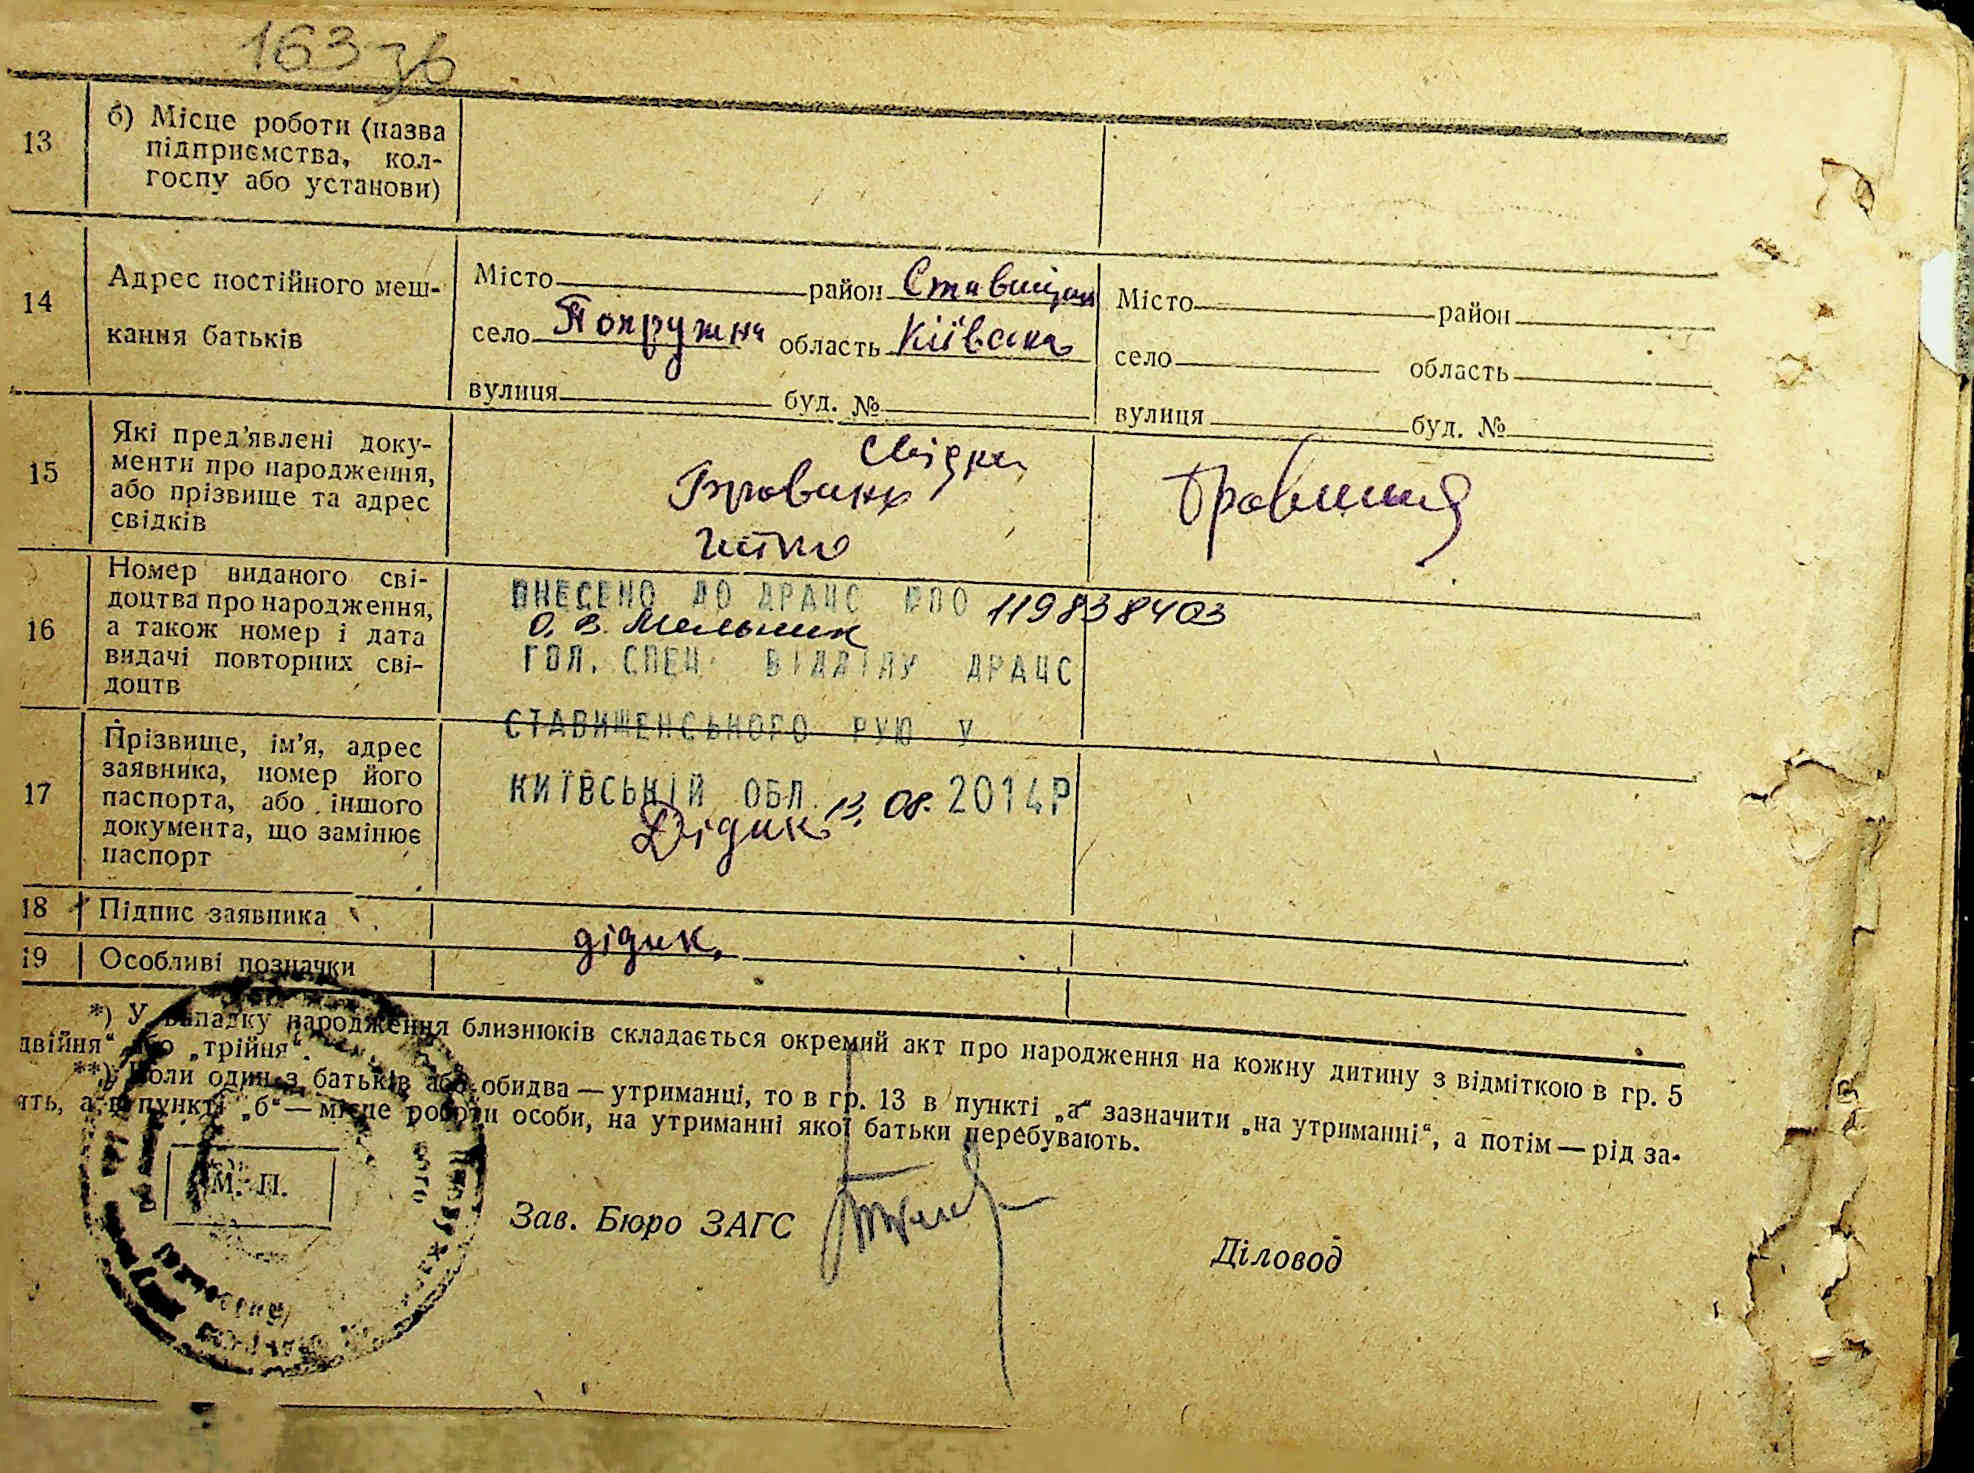 163 зв
13
б) Місце роботи (назва
підприємства, кол-
госпу або установи)
14
Адрес постійного меш-
кання батьків
Місто район Ставищан
село Попружна область Київська
вулиця буд. №
Місто район
село область
вулиця буд. №
15
Які пред'явлені доку-
менти про народження,
або прізвище та адрес
свідків
свідки
16
Номер виданого сві-
доцтва про народження,
а також номер і дата
видачі повторних сві-
доцтв
ВНЕСЕНО ДО ДРАЦС 119838403
О. В. Мельник
ГОЛ. СПЕЦ. ВІДДІЛУ ДРАЦС
СТАВИЩЕНСЬКОГО РУЮ У
КИЇВСЬКІЙ ОБЛ. 13. 08. 2014Р
17
Прізвище, ім'я, адрес
заявника, номер його
паспорта, або іншого
документа, що замінює
паспорт
Дідик
18
Підпис заявника
дідик
19
Особливі позначки
*) У випадку народження близнюків складається окремий акт про народження на кожну дитину з відміткою в гр. 5
двійня“ або „трійня“.
**) Коли один з батьків або обидва — утриманці, то в гр. 13 в пункті „а“ зазначити „на утриманні“, а потім — рід за-
ять, а в пункті „б“ — місце роботи особи, на утриманні якої батьки перебувають.
М. П.
Зав. Бюро ЗАГС
Діловод